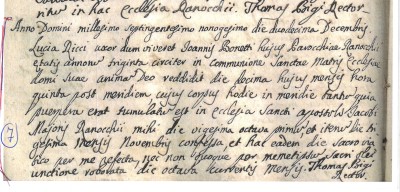 ritus in hac Ecclesia Ranocchii. Thomas Bigi Rector
Anno Domini millesimo septingentesimo nonogesimo die duodecima Decembris
Lucia Ricci uxor dum viveret Joannis Bonetti hujus Parochiae Ranocchii
etatis annorum triginta circiter in communione Sanctae Matris Ecclesiae
domi suae animam Deo reddidit die decima hujus mensis hora
quinta post meridiem cujus corpus hodie in meridie
erat tumulatus est in Ecclesia Sancti Apostoli Jacobi
7 Majoris Ranocchii mihi die vigesima octava primus et iterum die tri
gesima mensis Novembris confessa, et hac eadem die Sacro via
tico per me refecta, nec non per memetipsum Sacri Olei
unctione roborata die octava currentis mensis. Thomas Bigi
Rector.